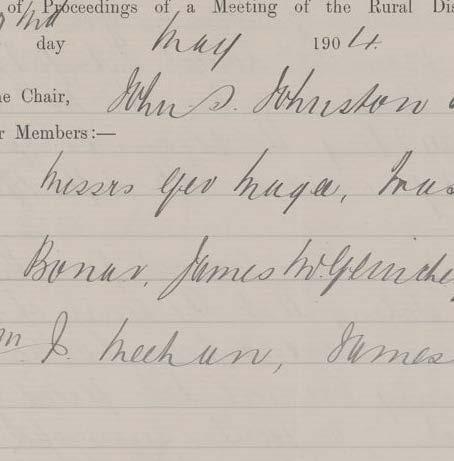 of Proceedings of a Meeting of the Rural Dis
day May 1904.
he Chair, John S. Johnston
r Members:—
Messrs Geo Magee,
Bonar, James McGlinchey
J. Meehan, James